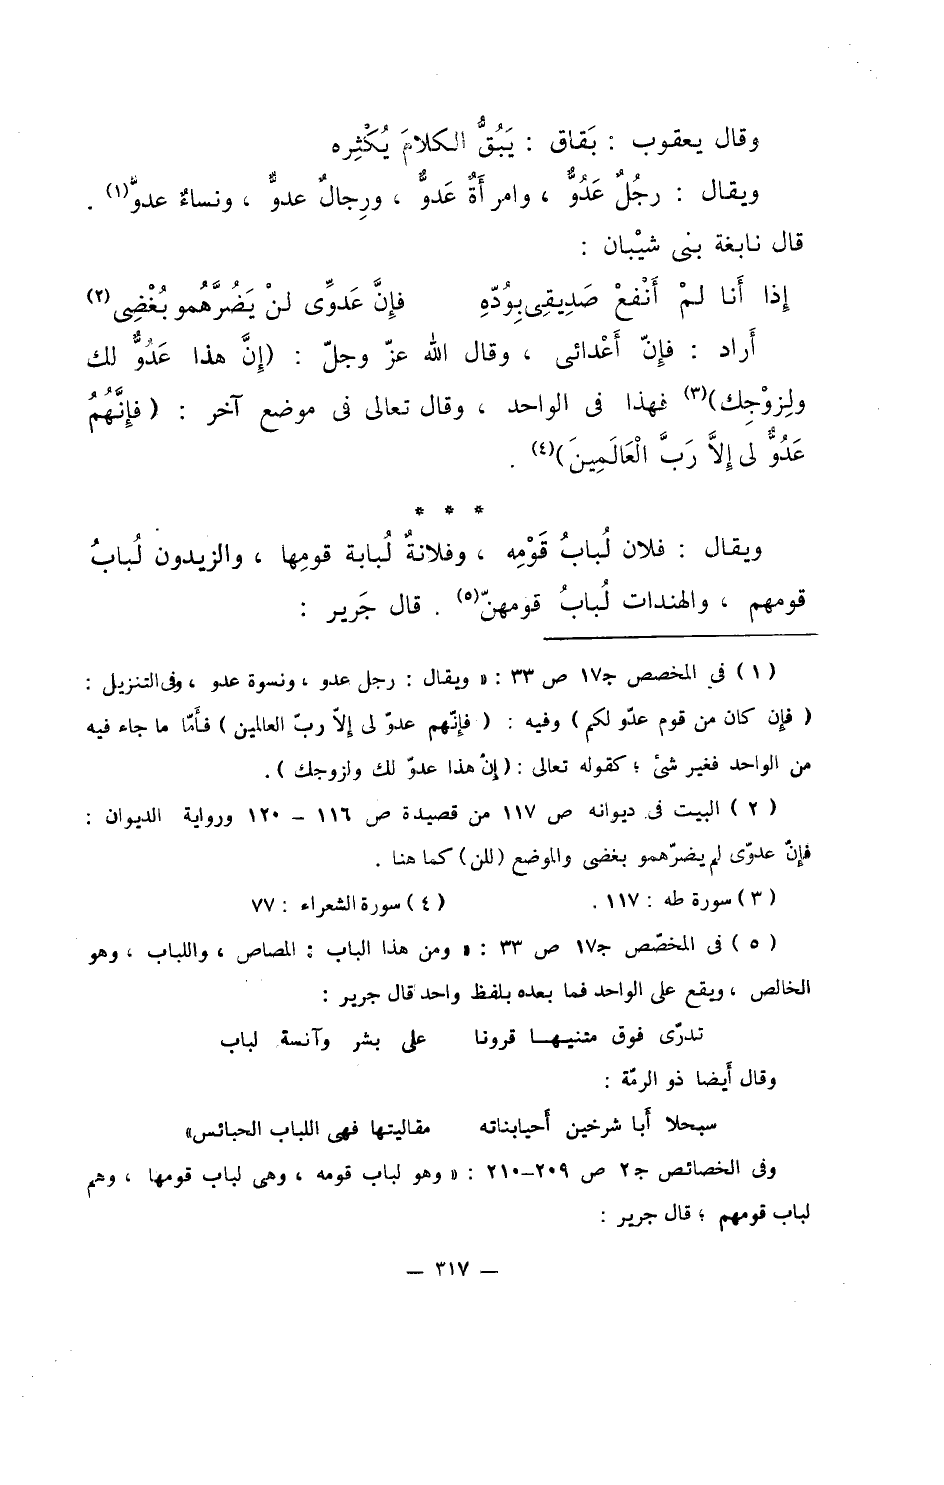 وقال يعقوب : بَقاق : يَبُقُّ الكلامَ يُكْثِره
ويقال : رجُلٌ عَدُوٌّ ، وامرأَةٌ عَدوٌّ ، ورِجالٌ عدوٌّ ، ونساءٌ عدوٌّ(١) .
قال نابغة بنى شيْبان :
إِذا أَنا لمْ أَنْفعْ صَدِيقِى بِوُدّهِ فإِنَّ عَدوِّى لنْ يَضُرَّهُمو بُغْضِى(٢)
أَراد : فإِنّ أَعْدائى ، وقال الله عزّ وجلّ : (إِنَّ هذا عَدُوٌّ لك
ولِزوْجِك)(٣) فهذا فى الواحد ، وقال تعالى فى موضع آخر : ( فإِنَّهُمُ
عَدُوٌّ لى إِلاَّ رَبَّ الْعَالَمِينَ )(٤) .
* * *
ويقال : فلان لُبابُ قَوْمِه ، وفلانةٌ لُبابة قومِها ، والزيدون لُبابُ
قومهم ، والهندات لُبابُ قومهنّ(٥) . قال جَرير :
( ١ ) فى المخصص ج١٧ ص ٣٣ : « ويقال : رجل عدو ، ونسوة عدو ، وفى التنزيل :
( فإن كان من قوم عدّو لكم ) وفيه : ( فإنّهم عدوّ لى إلاّ ربّ العالمين ) فأمّا ما جاء فيه
من الواحد فغير شئ ؛ كقوله تعالى : (إنْ هذا عدوّ لك ولزوجك ) .
( ٢ ) البيت فى ديوانه ص ١١٧ من قصيدة ص ١١٦ – ١٢٠ ورواية الديوان :
فإنّ عدوّى لم يضرّهمو بغضى والموضع (للن) كما هنا .
( ٣ ) سورة طه : ١١٧ . ( ٤ ) سورة الشعراء : ٧٧
( ٥ ) فى المخصّص ج١٧ ص ٣٣ : « ومن هذا الباب : المصاص ، واللباب ، وهو
الخالص ، ويقع على الواحد فما بعده بلفظ واحد قال جرير :
تدرّى فوق متنيهـا قرونا على بشر وآنسة لباب
وقال أيضا ذو الرمّة :
سبحلا أبا شرخين أحيابناته مقاليتها فهى اللباب الحبائس»
وفى الخصائص ج٢ ص ٢٠٩–٢١٠ : « وهو لباب قومه ، وهى لباب قومها ، وهم
لباب قومهم ؛ قال جرير :
— ٣١٧ —